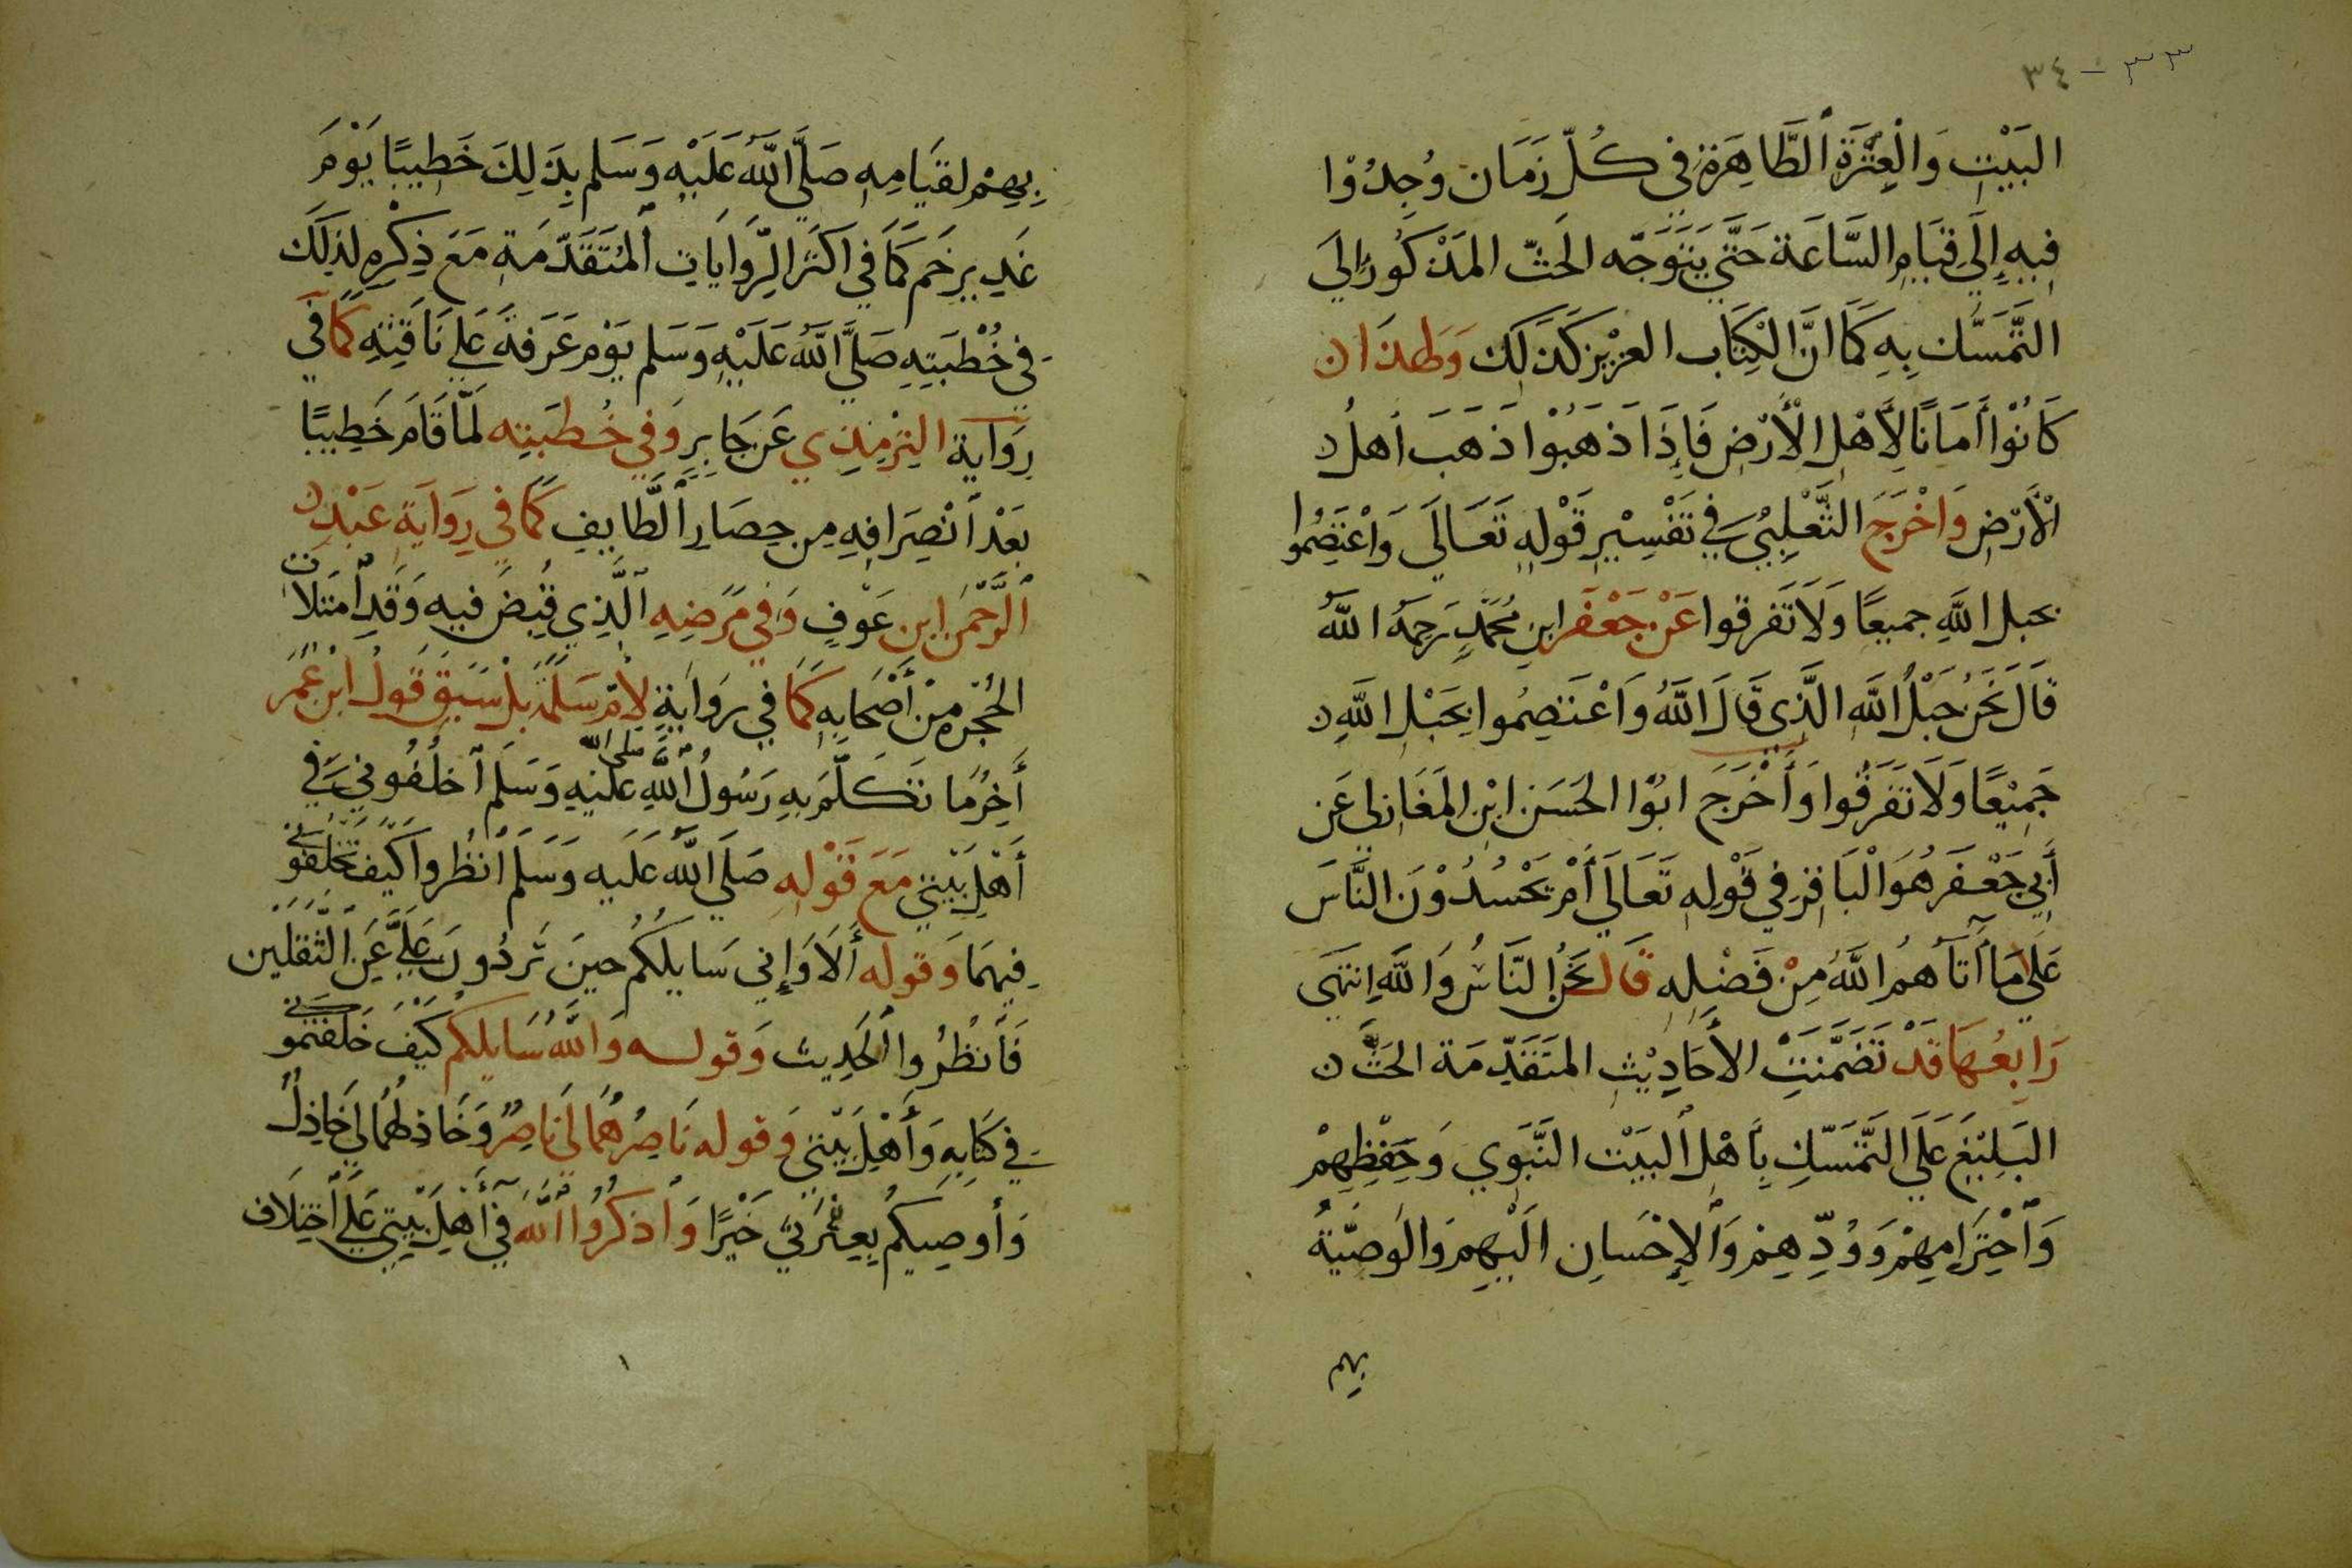 ٣٣ - ٣٤
البَيْتِ وَالْعِتْرَةِ ٱلطَّاهِرَةِ فى كُلّ زَمَان وُجِدُوْا
فِيهِ إِلَي قِيَامِ السَّاعَة حَتَّي يَتَوَجَّه الحَثّ المَذْكُورُ إِلَي
التَّمَسّك بِهِ كَمَا انَّ الْكِتَاب العزِيْز كَذَ لِكَ وَلِهَذَا ن
كَانُوْا أَمَانًا لِأَهْلِ الْأَرْضِ فَإِذَا ذَهَبُوْا ذَهَبَ أهلُ ن
الْأَرْضِ وَاخْرَجَ الثَّعْلِبِيُّ في تَفْسِيْرِ قَوْلِهِ تَعَالَي وَاعْتَصِمُوا
بحبل اللَّهِ جميعًا وَلَا تَفَرقوا عَنْ جَعْفَر ابنِ مُحَمَّدٍ رَحِمَهُ اللَّهُ
قَالَ نَحْنُ حَبْلُ اللَّه الَّذِى قَالَ اللَّهُ وَاعْتَصِمُوا بِحَبْلِ اللَّهِ ن
جَمِيْعًا وَلَا تَفَرَقُوا وَأَخْرَجَ ابُوْا الحَسَن ابْنِ المَغَازِلي عَن
أَبِي جَعْفَر هُوَ الْبَاقِرِ فِي قَوْلِهِ تَعَالَي أَمْ يَحْسُدُوْنَ النَّاسَ
عَلَي مَا آتَاهُمُ اللَّهُ مِنْ فَضْلِهِ قَالَ نَحْنُ النَّاسُ وَاللَّهِ انتَهَى
رَابِعُهَا قَدْ تَضَمَّنَتْ الأَحَادِيْثِ المتَقَدِّمَة الحَثَّ ن
البَلِيْغَ عَلَي التَّمَسّكِ بِأَهْلِ ٱلبَيْت النَّبَوِي وَحِفْظِهِمْ
وَٱحْتِرَامِهِمْ وَوُدِّهِمْ وَٱلإِحْسَانِ الَيْهِمْ وَالوَصِيَّةُ
بهم
بِهِمْ لقيَامِهِ صَلَّي اللَّهُ عَلَيْهِ وَسَلم بِذَ لِكَ خَطِيبًا يَوْمَ
غَدِ يرِ خَم كَمَا فِي اكْثَرِ الرِّوَايَاتِ ٱلمُتَقَدِّمَةِ مَعَ ذِكْرِهِ لذَلَكَ
فى خُطْبَتِهِ صَلَّي اللَّهُ عَلَيْهِ وَسَلم يَوْم عَرَفَةَ عَلي نَاقَتِهِ كَمَا في
رِوَاية التِرْمِذِي عَن جَابِرٍ وَفي خُطبَتِه لَمَّا قَامَ خَطِيبًا
بَعْدَ ٱنْصِرَافِهِ مِن حِصَارِ ٱلطَّايِفِ كَمَا في رِوَايَةِ عَبْدِ ن
ٱلرَّحْمَنِ ابن عَوْفٍ وَفِي مَرَضِهِ الَّذِي قُبِضَ فِيهِ وَقَدِ ٱمتَلأت
الحُجْرَه مِنْ أَصْحَابِهِ كَمَا في رِوَايَةٍ لِأُمِّ سَلَمَة بَلْ سَبَقَ قَولُ ابْنِ عُمَرَ
أَخِرُ مَا تَكَلَّمَ بِهِ رَسُولُ ٱللَّهِ صلى الله عَلَيْهِ وَسَلَمَ ٱخلُفُوني فِي
أَهْلِ بَيْتِي مَعَ قَوْلِهِ صَلَي اللَّه عَلَيه وَسَلَمَ ٱنظُرواكَيْفَ تَخْلِفُونى
فِيهِمَا وَقوله أَلَا وَإِني سَايلكُم حينَ تَرِدُونَ عَلَيَّ عَنِ الثَّقَلَين
فَٱنظُرُوا ٱلحَدِيث وَقوله وَاللَّهُ سَايلكُم كَيْفَ خَلَفتمُونى
في كِتَابِهِ وَأَهْلِ بَيْتي وَقوله نَاصِرُهُمَا لِي نَاصِرٌ وَخَاذِلهُمَا لِي خَاذِلٌ
وَأوصِيكُم بِعِتْرَتي خَيْرًا وَٱذكرُوا ٱللَّهَ في أَهْلِ بَيْتِي عَلَي ٱختِلَاف